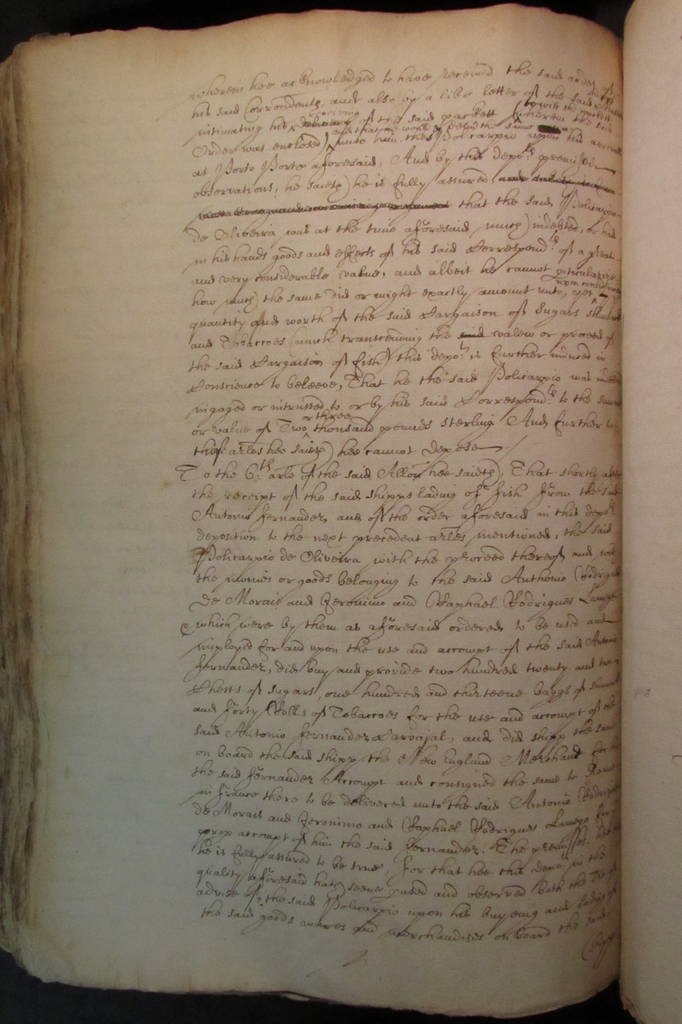 wherein hee acknowledged to have received the said order of
his said Correndents, and also by a like letter of the said
intimating his delivery of the said packett wherein the said
Order was enclosed unto him the said Policarpio upon his arrivall
at Porto Porto aforesaid, And by this depo:ts premised
observations, he saieth he is fully assured
that the said Policarpio
de Oliveira was at the time aforesaid, much indebted, or had
in his hands goods and effects of his said Correspond:ts of a great
and very considerable value, and albeit he cannot particularize
how much the same did or might exactly amount unto, yet
quantity and worth of the said Cargaison of Sugars
and Tobaccoes much transcending the said valew or proceed of
the said Cargaison of fish this depo:t is further induced in
Conscience to beleeve, That he the said Policarpio was
ingaged or intrusted to or by his said Correspond:ts to the summe
or value of Two or three thousand pounds sterling And further to
these arles hee saieth hee cannot depose
To the 6:th arle of the said Allon hee saieth, That shortly after
the receipt of the said shippe lading of fish from the said
Antonio fernandez, and of the order aforesaid in this depo:ts
deposition to the next precedent arles mentioned, the said
Policarpio de Oliveira with the proceed thereof and with
the monies or goods belonging to the said Anthonio Rodrigues
de Morais and Jeronimo and Raphael Rodrigues Lamego
which were by them as aforesaid ordered to be used and
imployed for and upon the use and accompt of the said Antonio
fernandez, did buy and provide two hundred twenty and
Chests of sugars, one hundred and thirteene baggs of
and forty Rolls of Tobaccoes for the use and accompt of the
said Antonio fernandez Carvajal, and did shipp the same
on board the said shipp the New England Merchant for
the said fernandez Accompt and consigned the same to
in france there to be delivered unto the said Antonio Rodrigues
de Morais and Jeronimo and Raphael Rodrigues Lamego for
propr accompt of him the said fernandez. The premisses
he is fully assured to be true, for that hee this depo:t in the
quality aforesaid hath seene and observed both the
advise of the said Policarpio upon his buyeing and lading of
the said goods wares and merchandizes on board the said